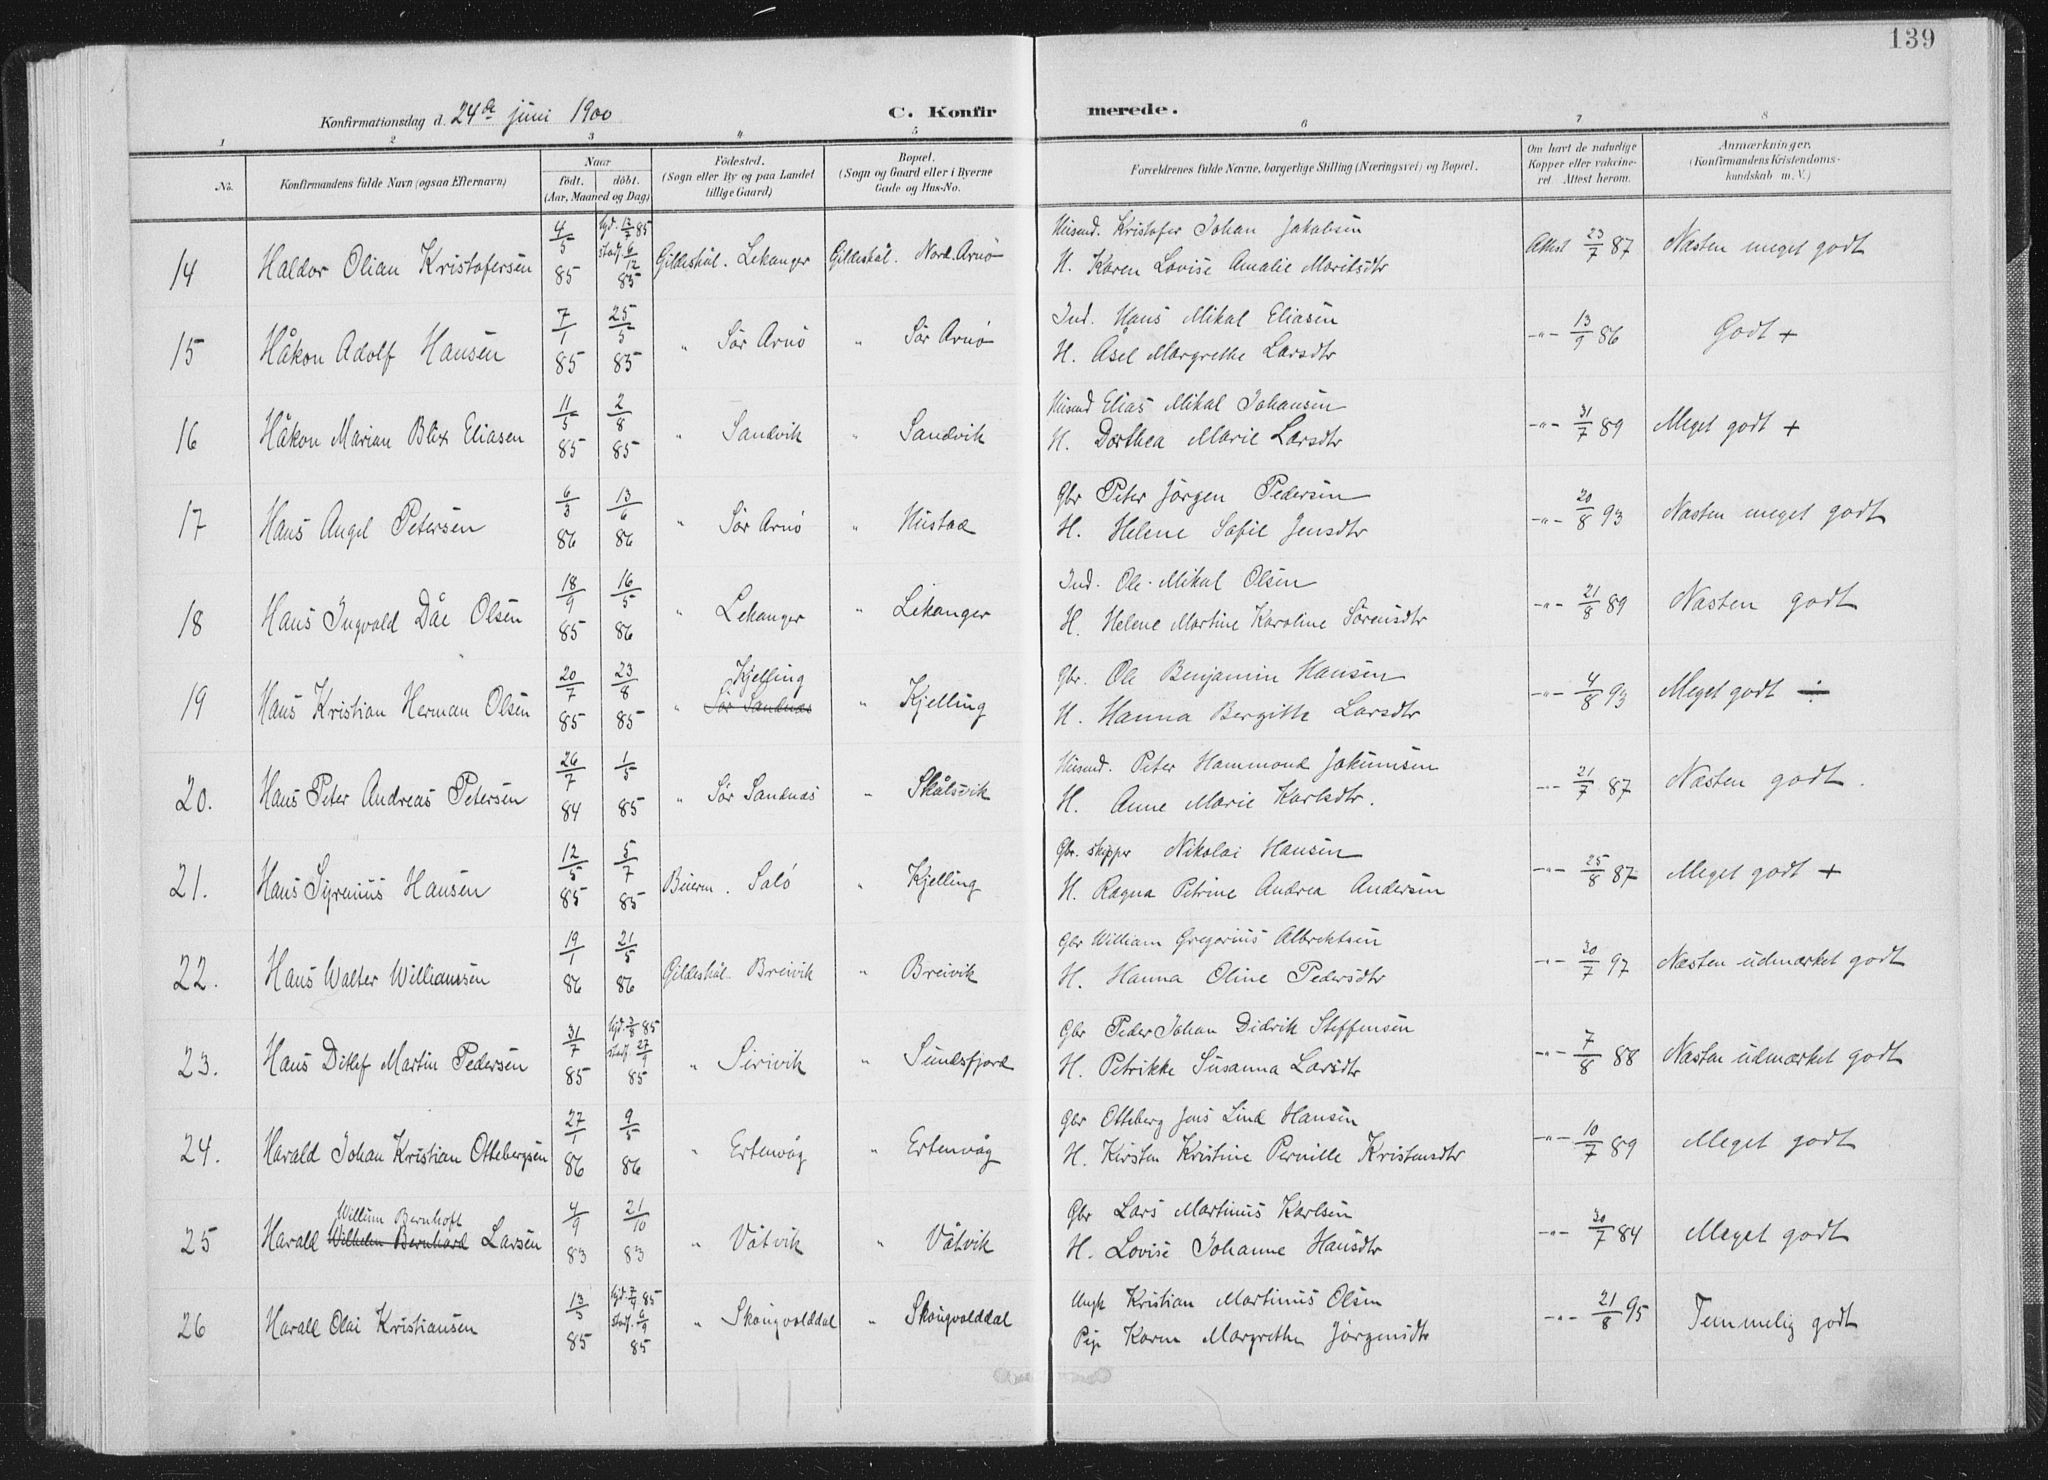 139
Konfirmationsdag d. 24de juni 1900 C. Konfirmerede.
1 2 3 4 5 6 7 8
No. Konfirmandens fulde Navn (ogsaa Efternavn) Naar født. døbt. (Aar, Maaned og Dag) Fødested. (Sogn eller By og paa Landet tillige Gaard) Bopæl. (Sogn og Gaard eller i Byerne Gade og Hus-No. Forældrenes fulde Navne, borgerlige Stilling (Næringsvei) og Bopæl. Om havt de naturlige Kopper eller vakcineret. Attest herom. Anmærkninger. (Konfirmandens Kristendomskundskab m. V.)
14 Haldor Olian Kristofersen 4/5 85 hjd. 13/7 85 stadf. 6/12 85 Gildeskål. Lekanger Gildeskål. Nord. Arnö Husmd. Kristofer Johan Jakobsen
H. Karen Lovise Amalie Moritsdtr Attest 23/7 87 Næsten meget godt
15 Håkon Adolf Hansen 7/1 85 25/5 85 " Sör Arnö " Sör Arnö Ind. Hans Mikal Eliasen
H. Åsel Margrethe Larsdtr -"- 13/9 86 Godt +
16 Håkon Marian Blix Eliasen 11/5 85 2/8 85 " Sandvik " Sandvik Husmd Elias Mikal Johansen
H. Dorthea Marie Larsdtr -"- 31/7 89 Meget godt +
17 Hans Angel Petersen 6/3 86 13/6 86 " Sör Arnö " Hustad Gbr Peter Jörgen Pedersen
H. Helene Sofie Jensdtr -"- 20/8 93 Næsten meget godt
18 Hans Ingvald Dåe Olsen 18/9 85 16/5 86 " Lekanger " Lekanger Ind. Ole Mikal Olsen
H. Helene Martine Karoline Sörensdtr -"- 21/8 89 Næsten godt
19 Hans Kristian Herman Olsen 20/7 85 23/8 85 " Kjelling Sör Sandnæs " Kjelling Gbr. Ole Benjamin Hansen
H. Hanna Bergitte Larsdtr -"- 4/8 93 Meget godt ÷
20. Hans Peter Andreas Petersen 26/7 84 1/5 85 " Sör Sandnæs " Skålsvik Husmd. Peter Hammond Jakumsen
H. Anne Marie Karlsdtr. -"- 21/7 87 Næsten godt.
21. Hans Syrenius Hansen 12/5 85 5/7 85 Beieren. Salö " Kjelling Gbr. skipper Nikolai Hansen
H. Ragna Petrine Andrea Andersen -"- 25/8 87 Meget godt +
22. Hans Walter Williamsen 19/1 86 21/5 86 Gildeskål. Breivik " Breivik Gbr William Gregorius Albrektsen
H. Hanna Oline Pedersdtr -"- 30/7 97 Næsten udmærket godt
23. Hans Ditlef Martin Pedersen 31/7 85 hjd. 3/8 85 stadf. 27/9 85 " Sirivik " Sundsfjord Gbr Peder Johan Didrik Steffensen
H. Petrikke Susanna Larsdtr -"- 7/8 88 Næsten udmærket godt
24. Harald Johan Kristian Ottebergsen 27/1 86 9/5 86 " Ertenvåg " Ertenvåg Gbr Otteberg Jens Lind Hansen
H. Kirsten Kristine Pernille Kristensdtr -"- 10/7 89 Meget godt
Willum Bernhoft
25 Harald Wilhelm Bernhard Larsen 4/9 83 21/10 83 " Våtvik " Våtvik Gbr Lars Martinus Karlsen
H. Lovise Johanne Hansdtr -"- 30/7 84 Meget godt
26 Harald Olai Kristiansen 13/5 85 hjd. 7/7 85 stadf. 6/9 85 " Skougvolddal " Skougvolddal Ungk Kristian Martinus Olsen
Pige Karen Margrethe Jörgensdtr -"- 21/8 95 Temmelig godt